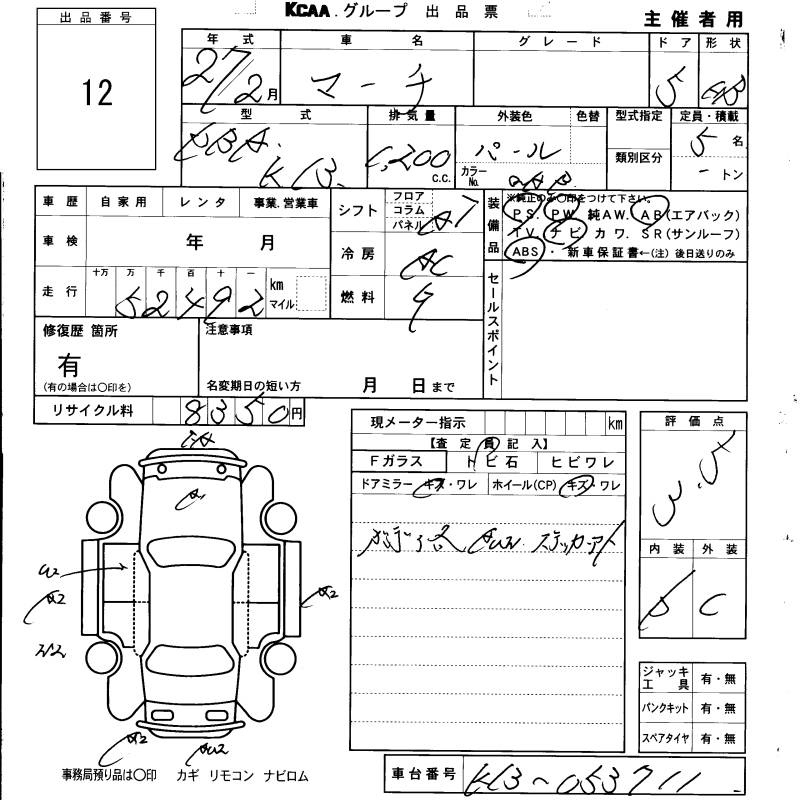 KCAA.グループ 出品票
主催者用
出品番号
12
年式 車名 グレード ドア 形状
27/2月 マーチ 5 HB
型式 排気量 外装色 色替 型式指定 定員・積載
DBA. K13. 1,200 c.c. パール カラーNo. QAB 類別区分 5名 -トン
車歴 自家用 レンタ 事業.営業車
車検 年 月
走行 十万 万 千 百 十 一
52492 km マイル
シフト フロア コラム パネル AT
冷房 AC
燃料 G
装備品 ※純正のみ〇印をつけて下さい。
PS. PW 純AW. AB(エアバック)
TV. ナビ カワ. SR(サンルーフ)
ABS・ 新車保証書←(注) 後日送りのみ
セールスポイント
修復歴 箇所
有
(有の場合は〇印を)
注意事項
名変期日の短い方 月 日まで
リサイクル料 8350円
現メーター指示 km
【査定員記入】
Fガラス トビ石 ヒビワレ
ドアミラー キズ・ワレ ホイール(CP) キズ・ワレ
ステッカーアト
評価点
3.5
内装 外装
D C
ジャッキ工具 有・無
パンクキット 有・無
スペアタイヤ 有・無
A1
U2
A2
A2
A2
AU2
事務局預り品は〇印 カギ リモコン ナビロム
車台番号 K13-053711